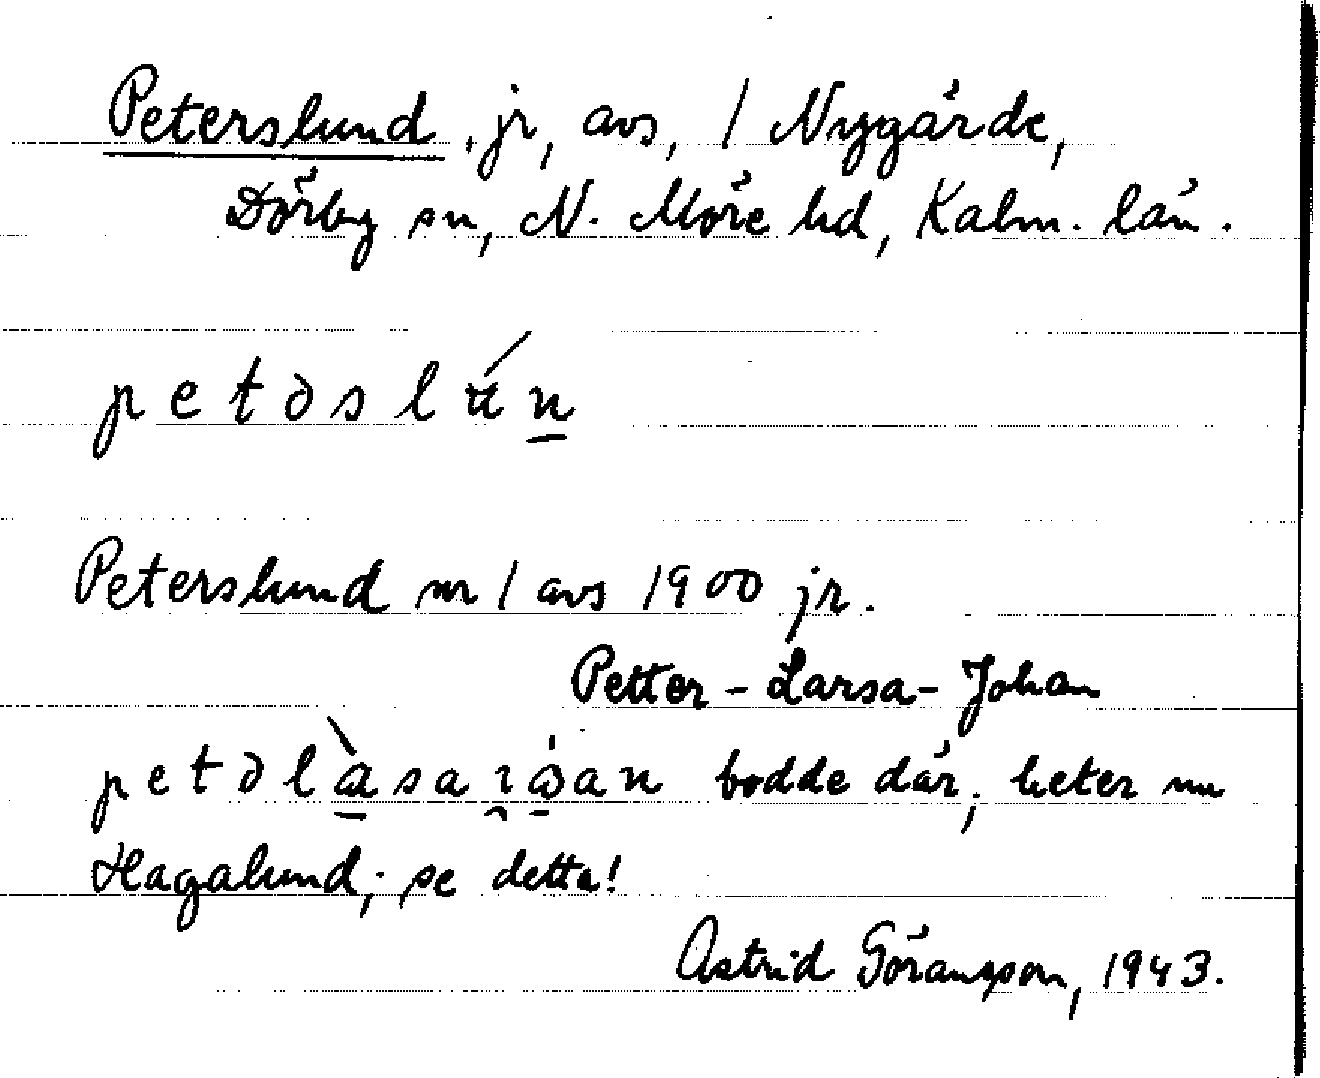 Peterslund, jr, avs, / Nygärde,
Dörby sn, N. Möre hd, Kalm. län.
petəslún
Peterslund nr 1 avs 1900 jr.
Petter-Larsa-Johan
petəlàsaɪɷ́an bodde där; heter nu
Hagalund; se detta!
Astrid Göransson, 1943.